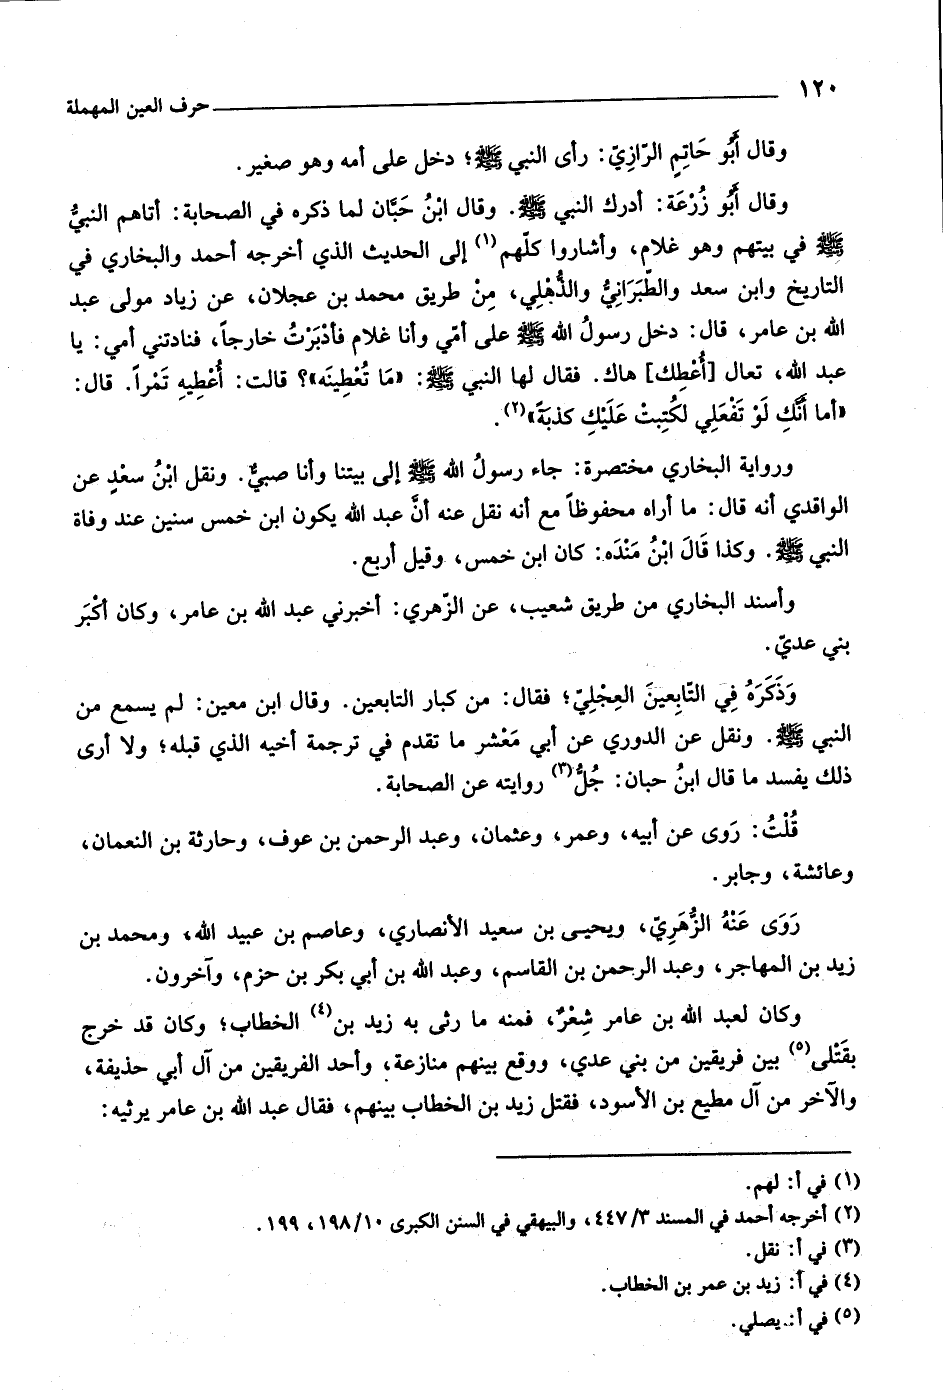 ١٢٠ حرف العين المهملة
وقال أَبُو حَاتِمٍ الرّازِيّ: رأى النبي ﷺ؛ دخل على أمه وهو صغير.
وقال أَبُو زُرْعَة: أدرك النبي ﷺ. وقال ابْنُ حَبَّان لما ذكره في الصحابة: أتاهم النبيُّ
ﷺ في بيتهم وهو غلام، وأشاروا كلّهم(١) إلى الحديث الذي أخرجه أحمد والبخاري في
التاريخ وابن سعد والطّبَرَانِيُّ والذُّهْلِي، مِنْ طريق محمد بن عجلان، عن زياد مولى عبد
الله بن عامر، قال: دخل رسولُ الله ﷺ على أمّي وأنا غلام فأدْبَرْتُ خارجاً، فنادتني أمي: يا
عبد الله، تعال [أُعْطِك] هاك. فقال لها النبي ﷺ: «مَا تُعْطِينَه»؟ قالت: أُعْطِيهِ تَمْراً. قال:
«أما أَنَّكِ لَوْ تَفْعَلِي لكُتِبتْ عَلَيْكِ كذبَةً»(٢).
ورواية البخاري مختصرة: جاء رسولُ الله ﷺ إلى بيتنا وأنا صبيٌّ. ونقل ابْنُ سعْدٍ عن
الواقدي أنه قال: ما أراه محفوظاً مع أنه نقل عنه أنَّ عبد الله يكون ابن خمس سنين عند وفاة
النبي ﷺ. وكذا قَالَ ابْنُ مَنْدَه: كان ابن خمس، وقيل أربع.
وأسند البخاري من طريق شعيب، عن الزّهري: أخبرني عبد الله بن عامر، وكان أكْبَر
بني عديّ.
وَذَكَرَهُ فِي التّابِعينَ العِجْلِيّ؛ فقال: من كبار التابعين. وقال ابن معين: لم يسمع من
النبي ﷺ. ونقل عن الدوري عن أبي مَعْشر ما تقدم في ترجمة أخيه الذي قبله؛ ولا أرى
ذلك يفسد ما قال ابنُ حبان: جُلُّ(٣) روايته عن الصحابة.
قُلْتُ: رَوى عن أبيه، وعمر، وعثمان، وعبد الرحمن بن عوف، وحارثة بن النعمان،
وعائشة، وجابر.
رَوَى عَنْهُ الزُّهَرِيّ، ويحيى بن سعيد الأنصاري، وعاصم بن عبيد الله، ومحمد بن
زيد بن المهاجر، وعبد الرحمن بن القاسم، وعبد الله بن أبي بكر بن حزم، وآخرون.
وكان لعبد الله بن عامر شِعْرٌ، فمنه ما رثى به زيد بن(٤) الخطاب؛ وكان قد خرج
بقَتْلى(٥) بين فريقين من بني عدي، ووقع بينهم منازعة، وأحد الفريقين من آل أبي حذيفة،
والآخر من آل مطيع بن الأسود، فقتل زيد بن الخطاب بينهم، فقال عبد الله بن عامر يرثيه:
(١) في أ: لهم.
(٢) أخرجه أحمد في المسند ٤٤٧/٣، والبيهقي في السنن الكبرى ١٩٨/١٠، ١٩٩.
(٣) في أ: نقل.
(٤) في أ: زيد بن عمر بن الخطاب.
(٥) في أ: يصلي.